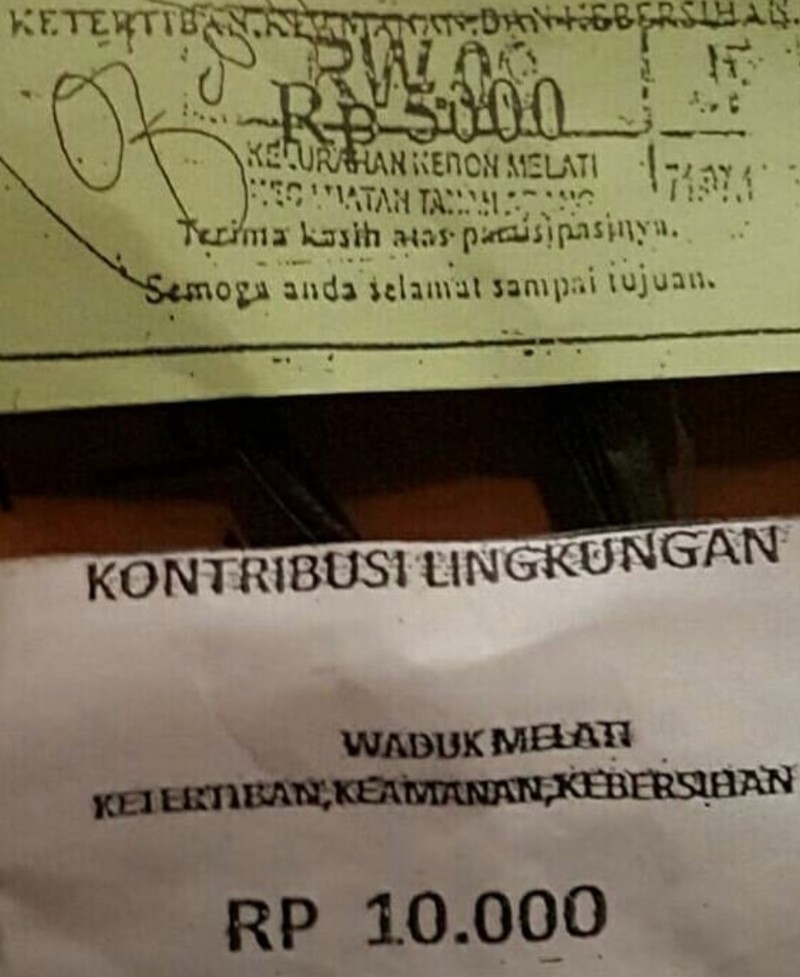 KETERTIBAN, KEAMANAN DAN KEBERSIHAN.
RW 06
Rp 5000
KELURAHAN KEBON MELATI
KECAMATAN TANAH ABANG
Terima kasih atas partisipasinya.
Semoga anda selamat sampai tujuan.
KONTRIBUSI LINGKUNGAN
WADUK MELATI
KETERTIBAN,KEAMANAN,KEBERSIHAN
RP 10.000